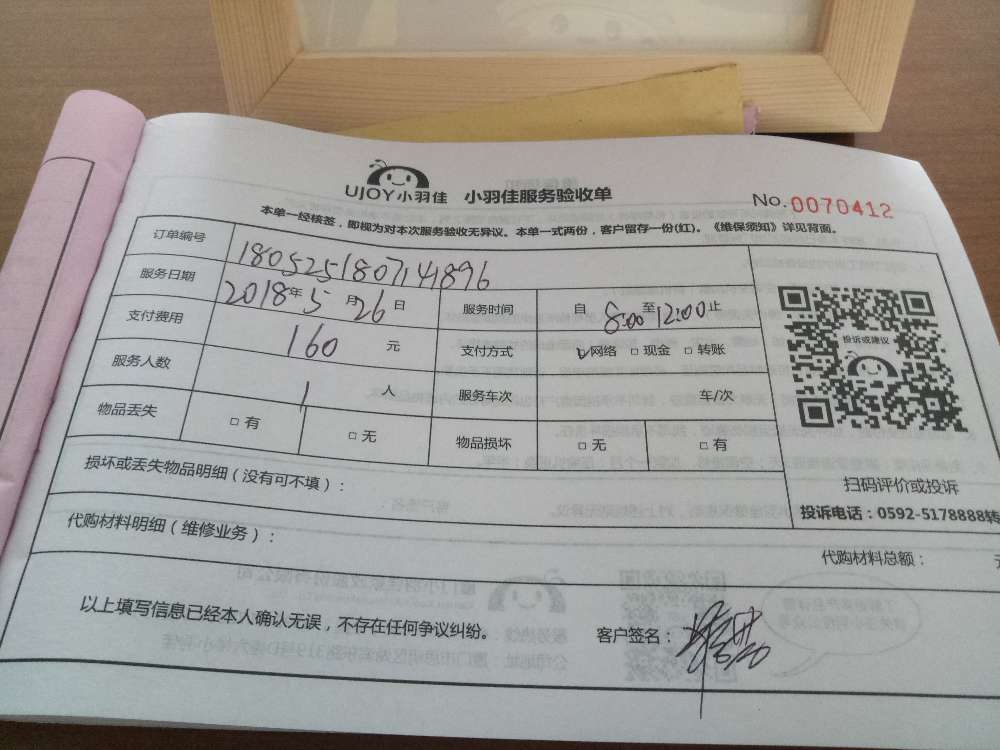 UJOY小羽佳 小羽佳服务验收单
No.0070412
本单一经核签，即视为对本次服务验收无异议。本单一式两份，客户留存一份(红)。《维保须知》详见背面。
订单编号 1805251807141896
服务日期 2018年5月26日 服务时间 自8:00至12:00止
支付费用 160元 支付方式 ☑网络 □现金 □转账
服务人数 1人 服务车次 车/次
物品丢失 □有 □无 物品损坏 □无 □有
投诉或建议
扫码评价或投诉
投诉电话：0592-5178888转
损坏或丢失物品明细（没有可不填）：
代购材料明细（维修业务）：
代购材料总额：
以上填写信息已经本人确认无误，不存在任何争议纠纷。 客户签名：